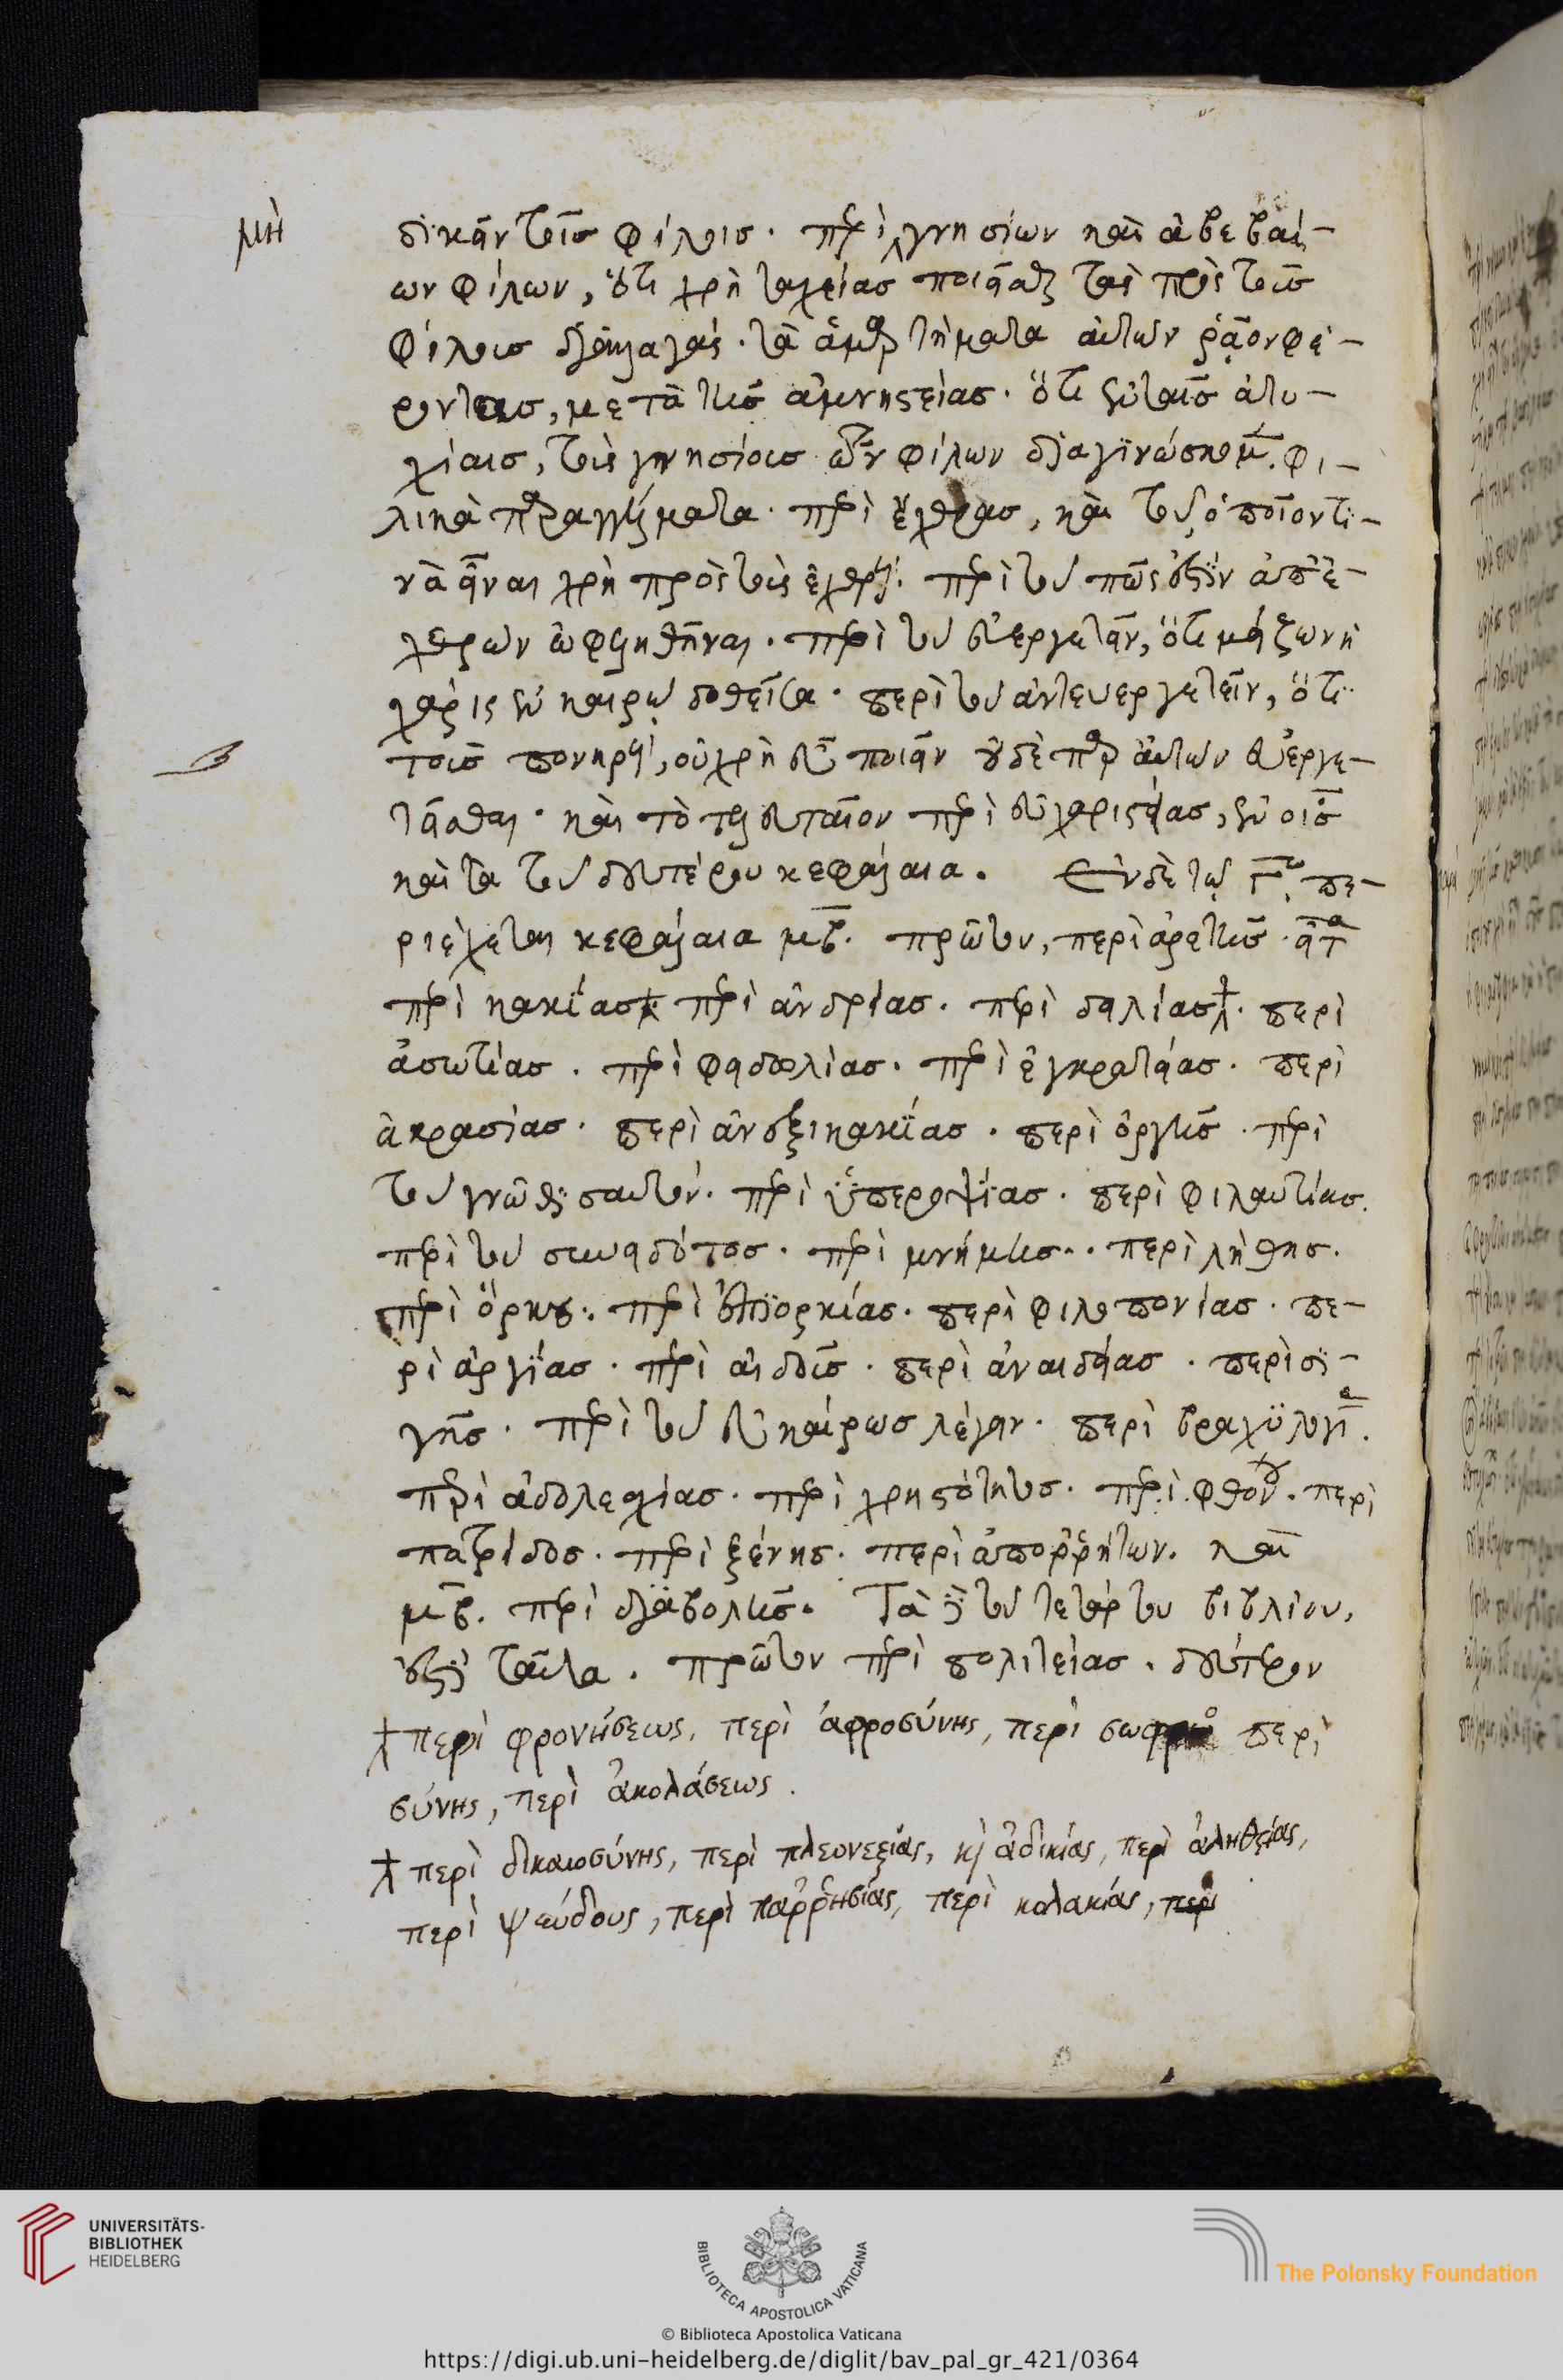 μὴ
δικεῖν τοῖς φίλοις. περὶ γνησίων καὶ ἀβεβαί-
ων φίλων, ὅτι χρὴ ταχείας ποιεῖσθαι τὰς πρὸς τοὺς
φίλους διαλλαγάς. τὰ ἁμαρτήματα αὐτῶν ῥᾷον φέ-
ροντας, μετὰ τῆς ἀμνηστείας. ὅτι ἐν ταῖς ἀτυ-
χίαις, τοὺς γνησίους τῶν φίλων διαγινώσκομεν. φι-
λικὰ παραγγέλματα. περὶ ἔχθρας, καὶ τοῦ ὁποῖον τι-
νὰ εἶναι χρὴ πρὸς τοὺς ἐχθρούς. περὶ τοῦ πῶς ἐστὶν ἀπ' ἐ-
χθρῶν ὠφεληθῆναι. περὶ τοῦ εὐεργετεῖν, ὅτι μείζων ἡ
χάρις ἐν καιρῷ δοθεῖσα. περὶ τοῦ ἀντευεργετεῖν, ὅτι
τοὺς πονηροὺς, οὐ χρὴ εὖ ποιεῖν οὐδὲ παρ' αὐτῶν εὐεργε-
τεῖσθαι. καὶ τὸ τελευταῖον περὶ εὐχαριστείας, ἐν οἷς
καὶ τὰ τοῦ δευτέρου κεφάλαια. Ἐν δὲ τῷ γ̅ῳ πε-
ριέχεται κεφάλαια μβ. πρῶτον, περὶ ἀρετῆς. εἶτα
περὶ κακίας. περὶ ἀνδρίας. περὶ δειλίας. περὶ
ἀσωτίας. περὶ φειδωλίας. περὶ ἐγκρατείας. περὶ
ἀκρασίας. περὶ ἀνεξικακίας. περὶ ὀργῆς. περὶ
τοῦ γνῶθι σαυτόν. περὶ ὑπεροψίας. περὶ φιλαυτίας.
περὶ τοῦ συνειδότος. περὶ μνήμης. περὶ λήθης.
περὶ ὅρκου. περὶ ἐπιορκίας. περὶ φιλοπονίας. πε-
ρὶ ἀργίας. περὶ αἰδοῦς. περὶ ἀναιδείας. περὶ σι-
γῆς. περὶ τοῦ εὐκαίρως λέγειν. περὶ βραχυλογίας.
περὶ ἀδολεσχίας. περὶ χρηστότητος. περὶ φθόνου. περὶ
πατρίδος. περὶ ξένης. περὶ ἀπορρήτων. καὶ
μβ. περὶ διαβολῆς. Τὰ δὲ τοῦ τετάρτου βιβλίου,
ἐστὶ ταῦτα. πρῶτον περὶ πολιτείας. δεύτερον
περὶ
περὶ φρονήσεως, περὶ ἀφροσύνης, περὶ σωφρο
σύνης, περὶ ἀκολάσεως.
περὶ δικαιοσύνης, περὶ πλεονεξίας, κὶ ἀδικίας, περὶ ἀληθείας,
περὶ ψεύδους, περὶ παῤῥησίας, περὶ κολακίας, περὶ
UNIVERSITÄTS-
BIBLIOTHEK
HEIDELBERG
BIBLIOTECA APOSTOLICA VATICANA
The Polonsky Foundation
© Biblioteca Apostolica Vaticana
https://digi.ub.uni-heidelberg.de/diglit/bav_pal_gr_421/0364